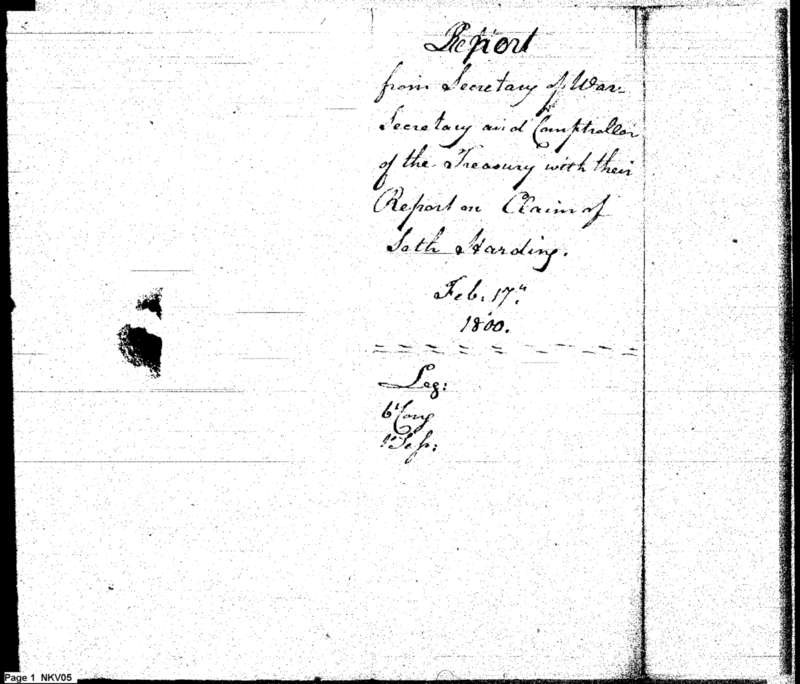 Report
from Secretary of War
Secretary and Comptroller
of the Treasury with their
Report on Claim of
Seth Harding.
Feb: 17th
1800.
Leg:
6 Cong
1 Sess:
Page 1 NKV05